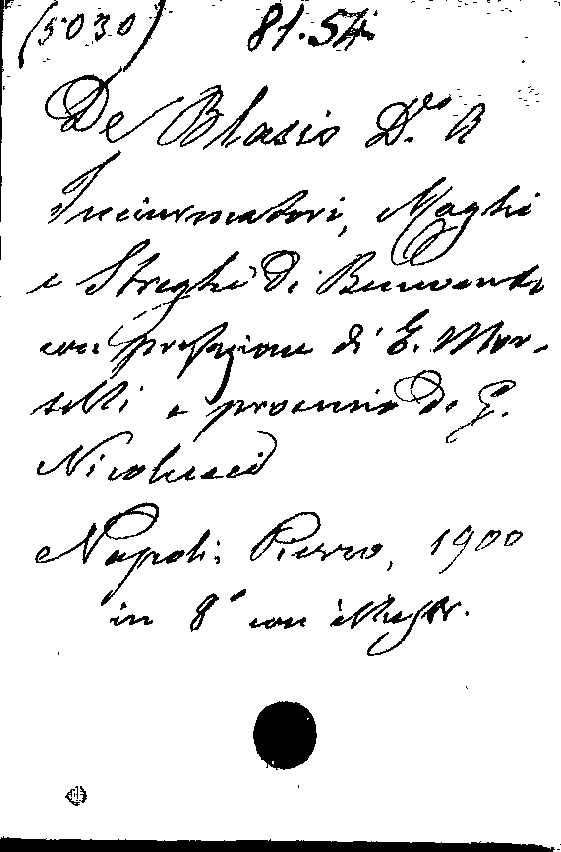 (5030) 81.54.
De Blasio D.r A
Inciarmatori, Maghi
e Streghe di Benevento
con prefazione di E. Mor-
selli e proemio di G.
Nicolucci
Napoli, Pierro, 1900
in 8° con illustr.